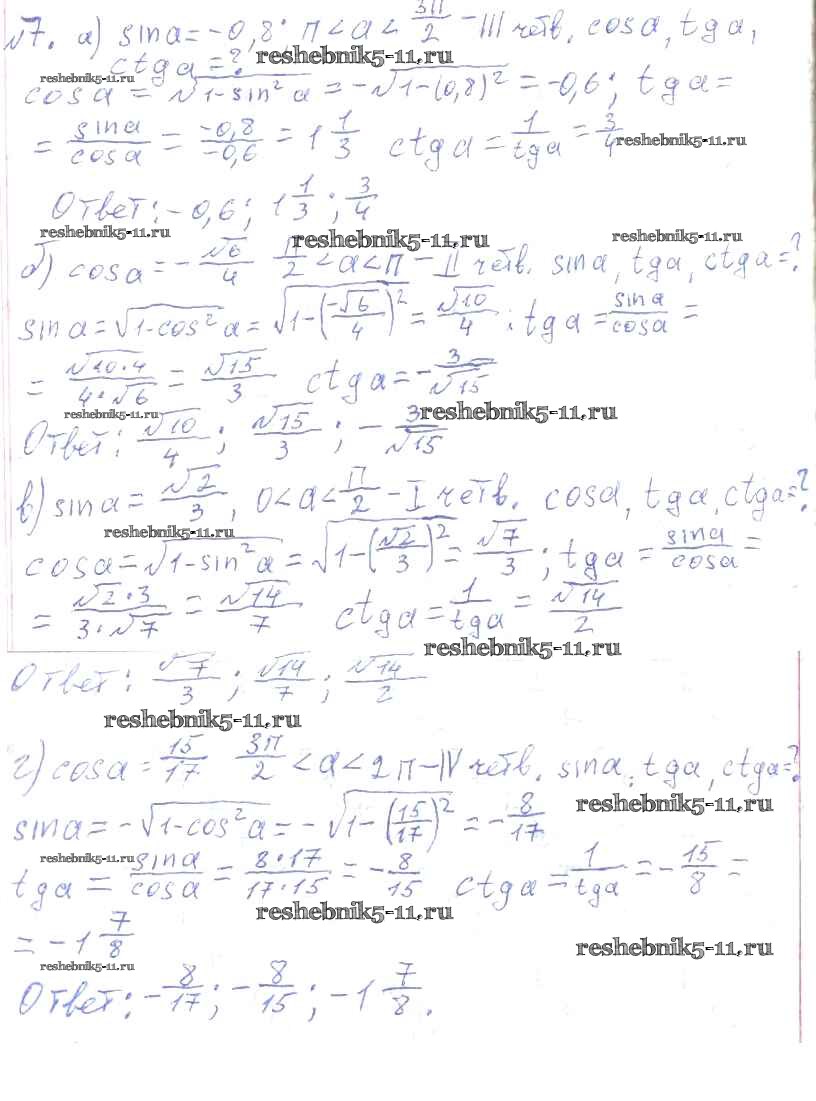 №7. а) sina = -0,8; π < a < 3π/2 - III четв. cosa, tga,
ctga = ? reshebnik5-11.ru
reshebnik5-11.ru
cosa = √1-sin²a = -√1-(0,8)² = -0,6; tga =
= sina/cosa = -0,8/-0,6 = 1 1/3 ctga = 1/tga = 3/4 reshebnik5-11.ru
Ответ: -0,6; 1 1/3; 3/4
reshebnik5-11.ru reshebnik5-11.ru reshebnik5-11.ru
б) cosa = -√6/4 π/2 < a < π - II четв. sina, tga, ctga = ?
sina = √1-cos²a = √1-(-√6/4)² = √10/4; tga = sina/cosa =
= √10·4/4·√6 = √15/3 ctga = -3/√15
reshebnik5-11.ru reshebnik5-11.ru
Ответ: √10/4; √15/3; -3/√15
в) sina = √2/3, 0 < a < π/2 - I четв. cosa, tga, ctga = ?
reshebnik5-11.ru
cosa = √1-sin²a = √1-(√2/3)² = √7/3; tga = sina/cosa =
= √2·3/3·√7 = √14/7 ctga = 1/tga = √14/2
reshebnik5-11.ru
Ответ: √7/3; √14/7; √14/2
reshebnik5-11.ru
г) cosa = 15/17 3π/2 < a < 2π - IV четв. sina; tga, ctga = ?
reshebnik5-11.ru
sina = -√1-cos²a = -√1-(15/17)² = -8/17
reshebnik5-11.ru
tga = sina/cosa = 8·17/17·15 = -8/15 ctga = 1/tga = -15/8 =
reshebnik5-11.ru
= -1 7/8
reshebnik5-11.ru
reshebnik5-11.ru
Ответ: -8/17; -8/15; -1 7/8.